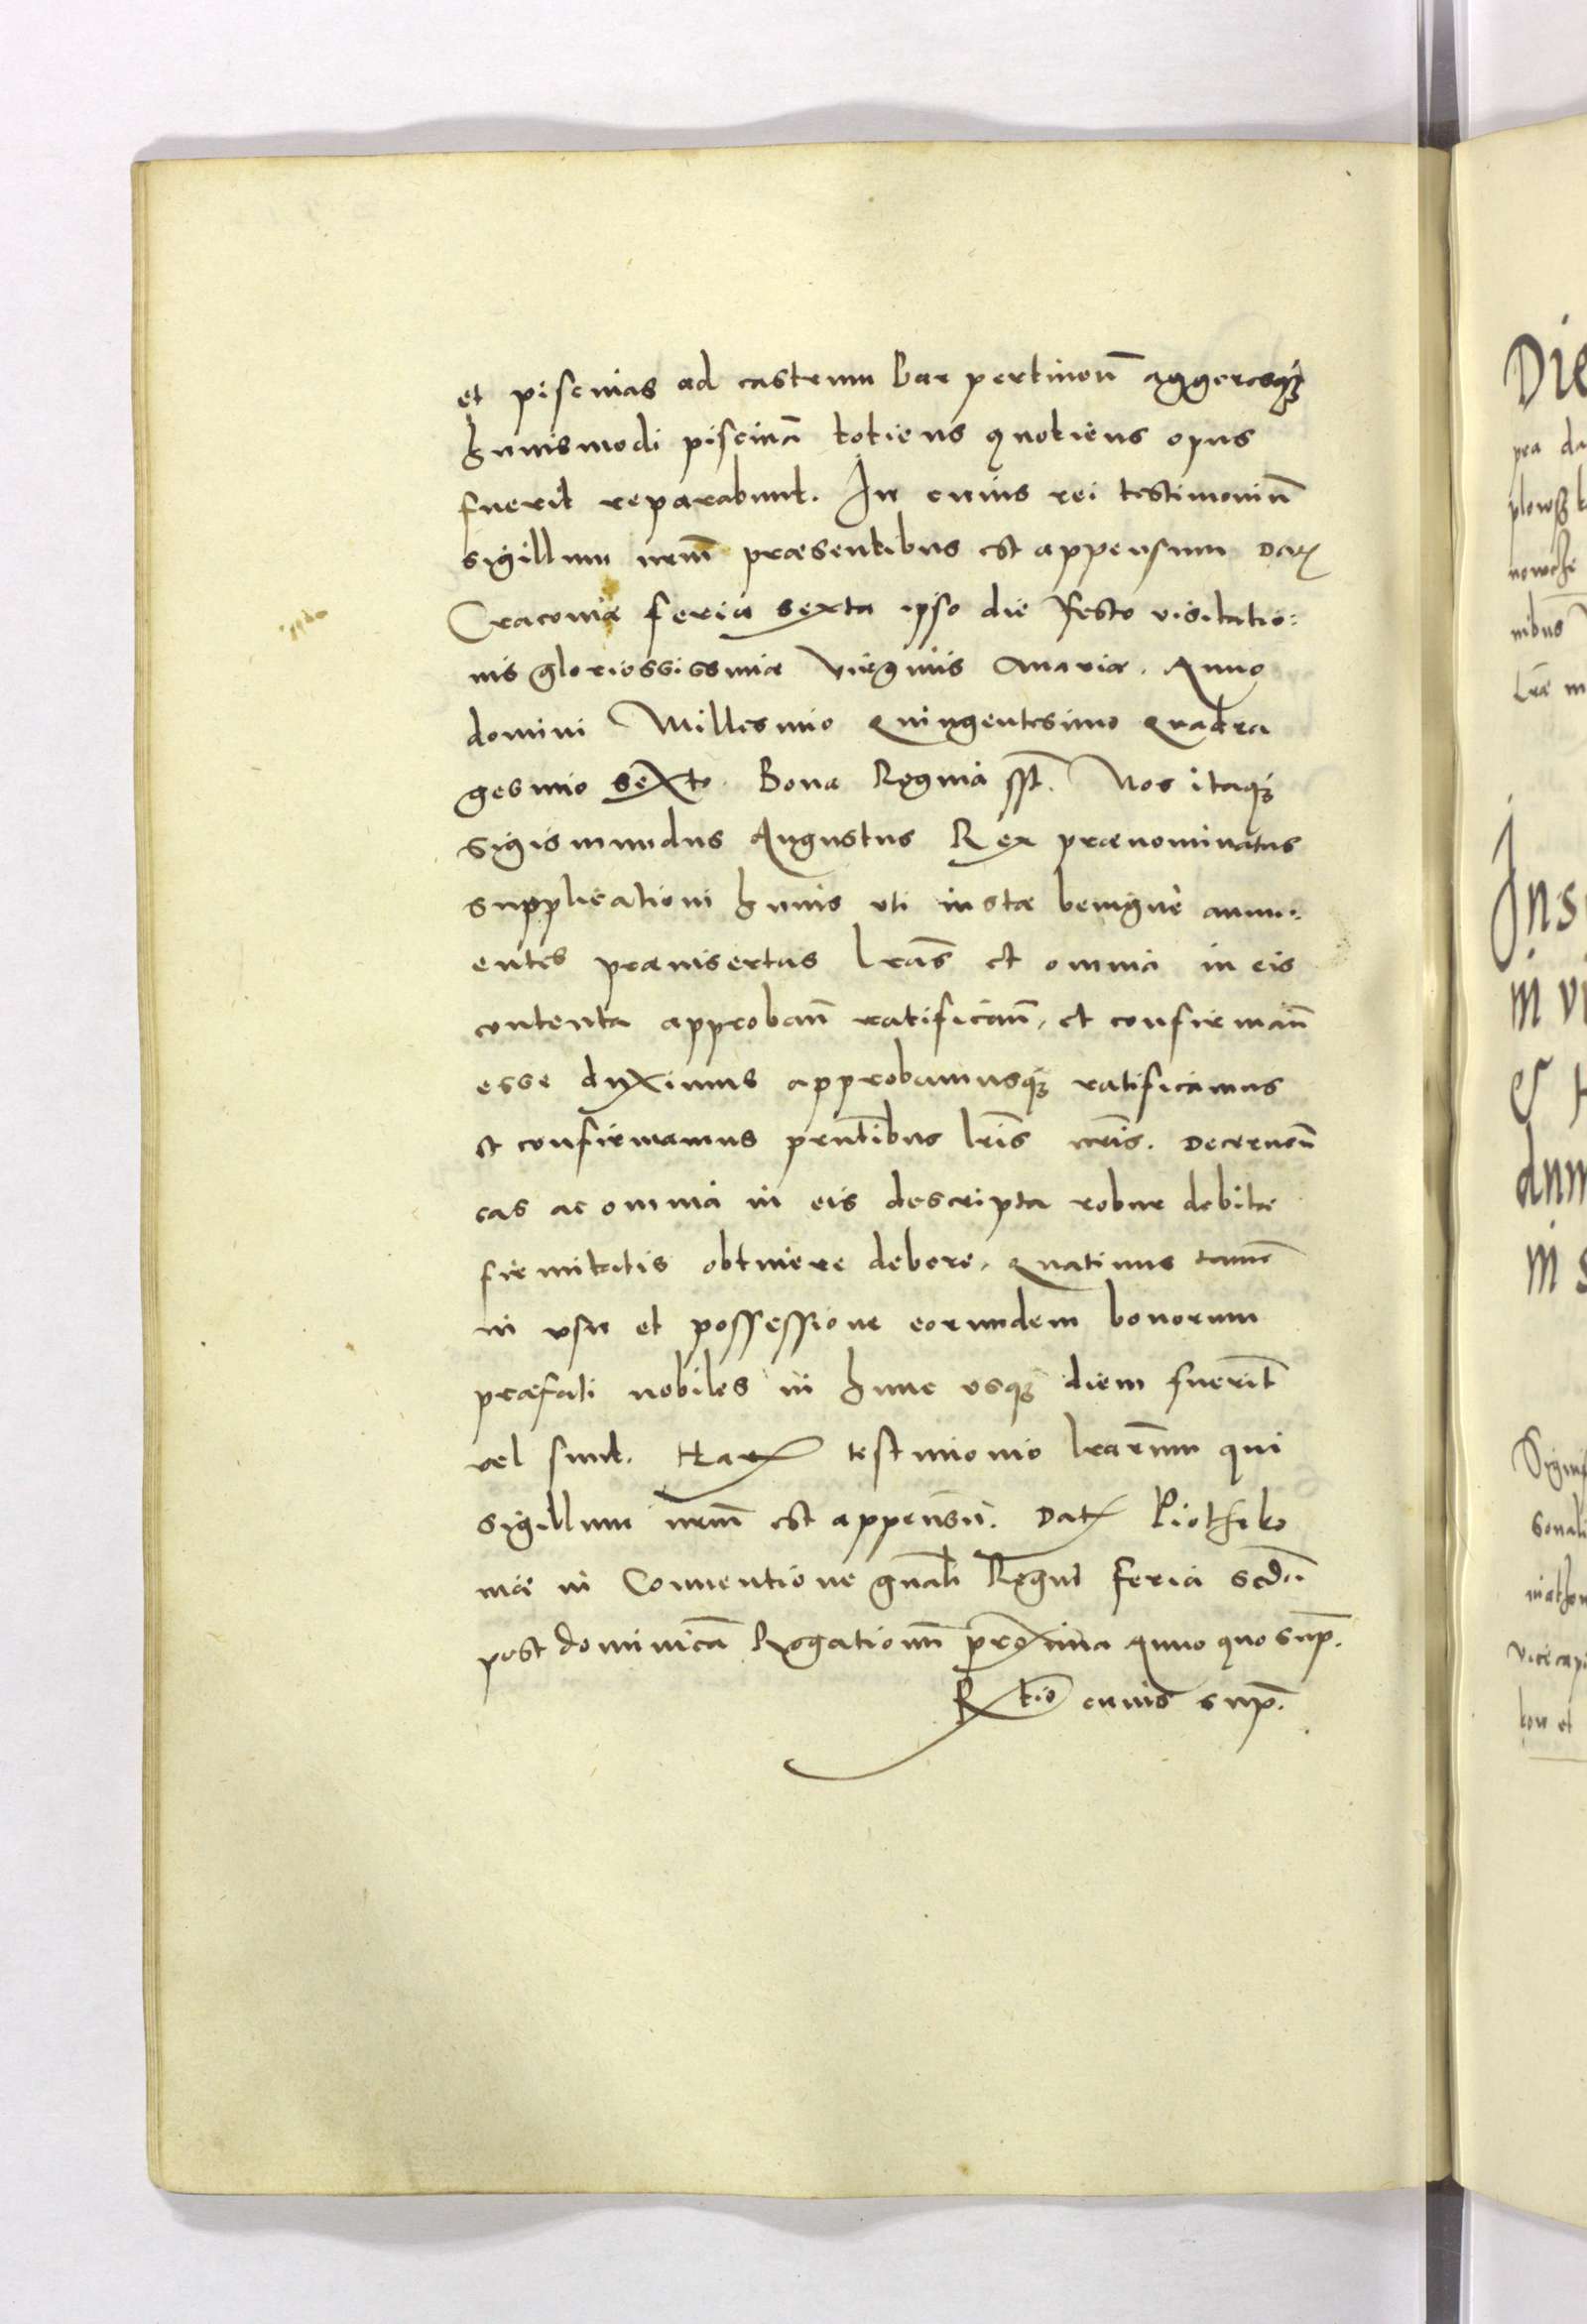 et piscinas ad castrum Bar pertinen̄ aggeresqꝫ
huiusmodi piscinā totiens quotiens opus
fuerit reparabunt. In cuius rei testimoniū
sigillum nr̄m præsentibus est appensum Datꝭ
Cracoviæ feria sexta ipso die Festo visitatio:
nis gloriosissimæ Virginis Mariæ. Anno
domini Millesimo Quingentesimo Quadra
gesimo sexto. Bona Regina sst̄. Nos itaqꝫ
Sigismundus Augustus Rex prænominatus
supplicationi huius uti iustæ benigne annu:
entes præinsertas lrās et omnia in eis
contenta approban̄ ratifican̄, et confirman̄
esse duximus approbamusqꝫ ratificamus
et confirmamus pn̄tibus lr̄is nr̄is. Decernen̄
eas ac omnia in eis descripta robur debitæ
firmitatis obtinere debere, Quatinus tamē
in usu et possessione eorundem bonorum
præfati nobiles in hunc usqꝫ diem fuerin̄t
vel sunt. Harꝝ testimonio lrārum qui
sigillum nr̄m est appensū. Datꝭ Piotrko
viæ in Conventione gn̄ali Regni feria scd̄a
post dominicā Rogationū proxima Anno quo sup̄.
Rtīo cuius sup̄.